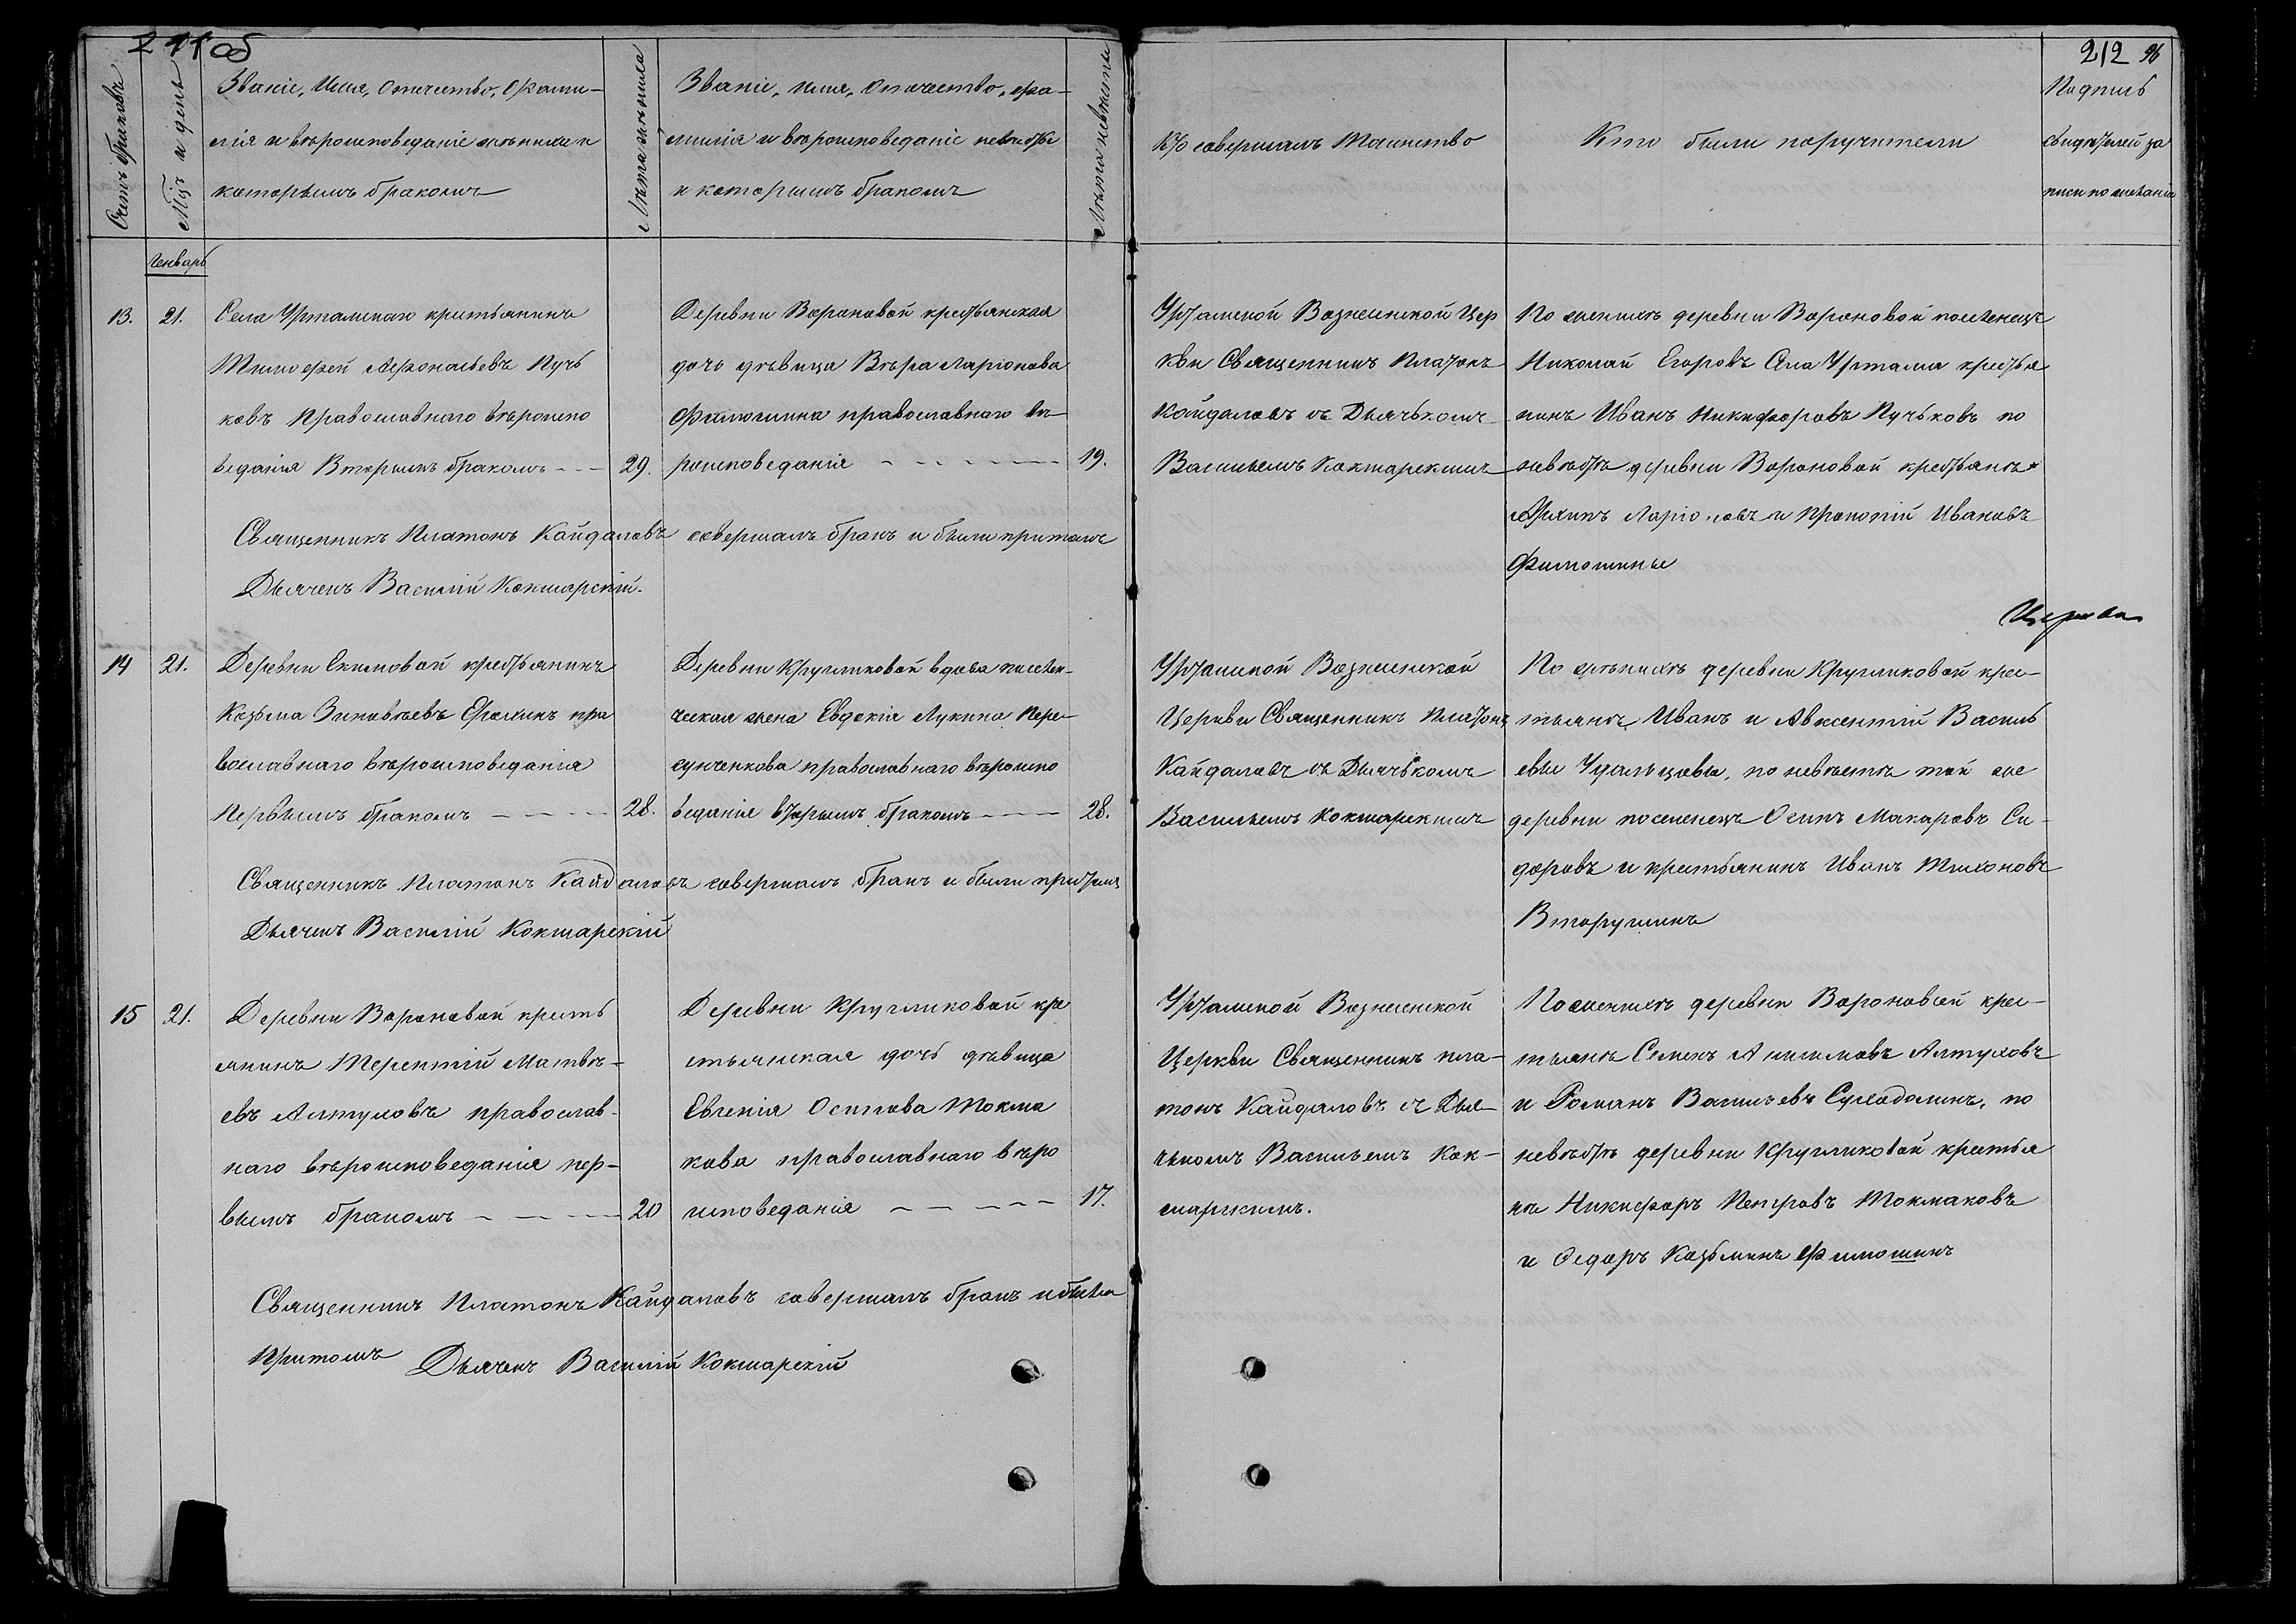 211 об
212 96
Счетъ браковъ
Мцъ и день
Званіе, Имя, Отчество, Фами-
лія и вѣроисповеданіе жениха и
которымъ бракомъ
Лѣта жениха
Званіе, имя, отечество, фа-
милія и вѣроисповеданіе невѣсты
и которымъ бракомъ
Лѣта невѣсты
Кто совершалъ Таинство
Кто были поручители
Подпись
свидѣтелей за
писи по желанію
Генварь
13.
21.
Села Уртамскаго крестьянинъ
Тимофей Афонасьевъ Пучь
ковъ Православнаго вѣроиспо
веданія Вторымъ бракомъ
29.
Деревни Вороновой крестьянская
дочь дѣвица Вѣра Ларіонова
Филошина православнаго вѣ-
роисповеданія
19.
Уртамской Вознесенской Цер
кви Священникъ Платонъ
Кайдаловъ съ Дьячькомъ
Васильемъ Кокшарскимъ
По женихѣ деревни Вороновой поселенецъ
Николай Егоровъ Села Уртама крестья
нинъ Иванъ Никифоровъ Пучьковъ по
невѣстѣ деревни Вороновой крестьянѣ
Ларіоновъ и Прокопій Ивановъ
Филошины
Священникъ Платонъ Кайдаловъ совершалъ бракъ и были притомъ
Дьячекъ Василій Кокшарскій.
14
21.
Деревни Екимовой крестьянинъ
Козьма Зиновьевъ Фокинъ пра
вославнаго вѣроисповеданія
Первымъ бракомъ
28.
Деревни Кругликовой вдова поселен-
ческая жена Евдокія Лукина Пере-
православнаго вѣроиспо
веданія вторымъ бракомъ
28.
Уртамской Вознесенской
Церкви Священникъ Платонъ
Кайдаловъ съ Дьячькомъ
Васильемъ Кокшарскимъ
По женихѣ деревни Кругликовой крес-
тьянѣ Иванъ и Авксентій Василь
евы Удальцовы, по невѣстѣ той же
деревни поселенецъ Осипъ Макаровъ Си-
доровъ и крестьянинъ Иванъ Тихоновъ
Вторушинъ
Священникъ Платонъ Кайдаловъ совершалъ бракъ и были притомъ
Дьячекъ Василій Кокшарскій
15
21.
Деревни Вороновой кресть
янинъ Терентій Матвѣ-
евъ Алтуховъ православ-
наго вѣроисповеданія пер-
вымъ бракомъ
20
Деревни Кругликовой кре
стьянская дочь дѣвица
Евгенія Осипова Токма
кова православнаго вѣро
исповеданія
17.
Уртамской Вознесенской
Церкви Священникъ пла-
тонъ Кайдаловъ съ Дья-
чькомъ Васильемъ Кок-
шарскимъ.
По женихѣ деревни Вороновой крес-
тьянѣ Семенъ Анисимовъ Алтуховъ
и Романъ Васильевъ Суходолинъ, по
невѣстѣ деревни Кругликовой крестья
не Никифоръ Петровъ Токмаковъ
и Федоръ Козьминъ Филошинъ
Священникъ Платонъ Кайдаловъ совершалъ бракъ и были
притомъ Дьячекъ Василій Кокшарскій